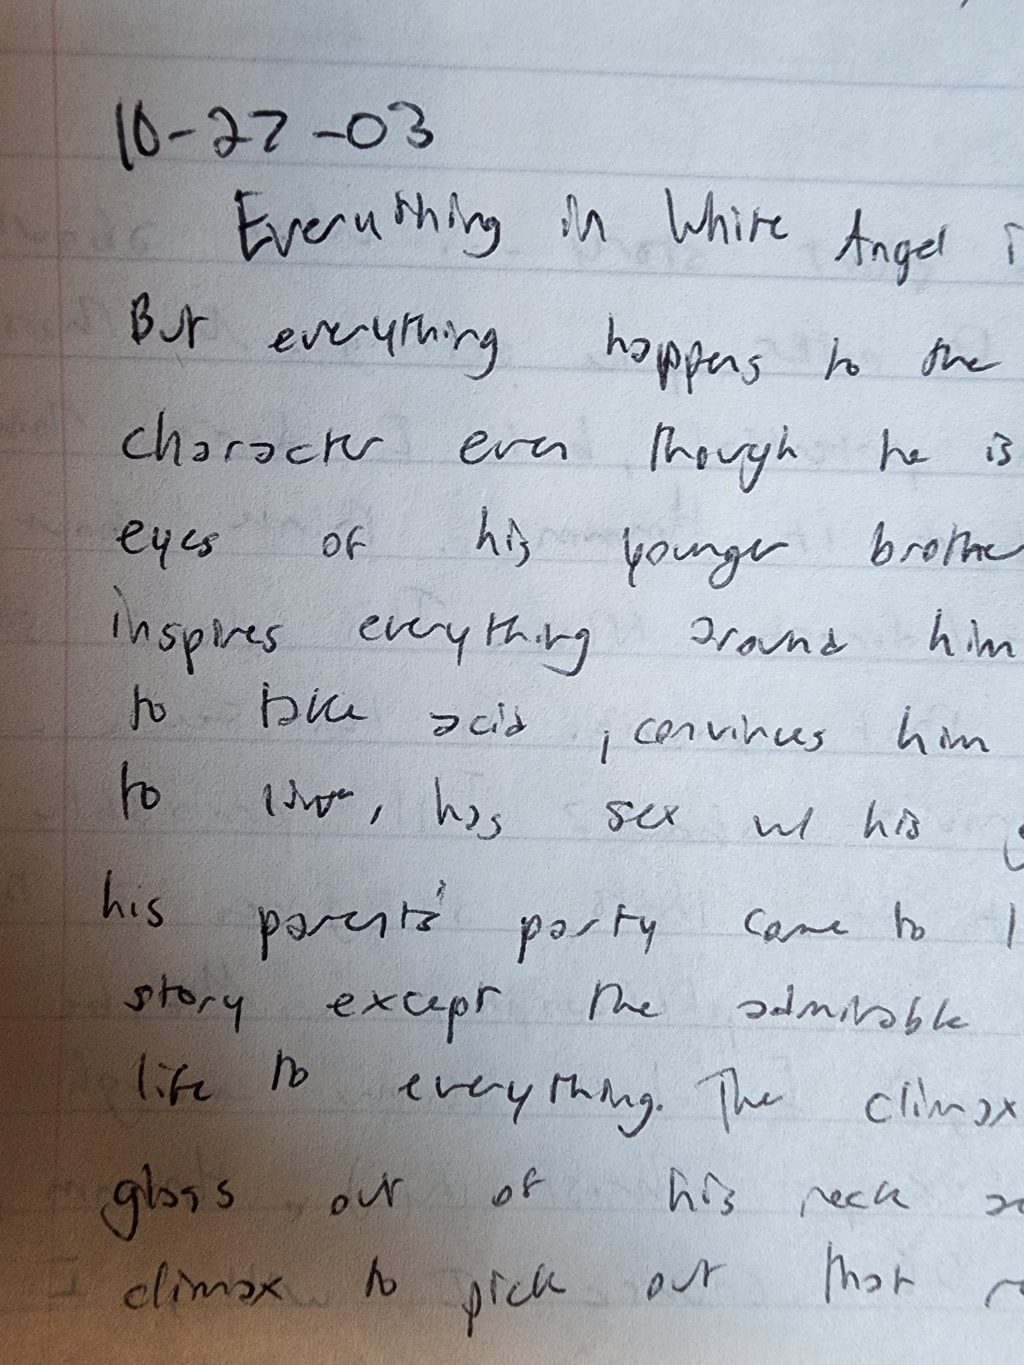 10-27-03
Everything in White Angel i
But everything happens to the
character even though he is
eyes of his younger brothe
inspires everything around him
to take acid, convinces him
to live, has sex w/ his g
his parents' party come to l
story except the admirable
life to everything. The climax
glass out of his neck a
climax to pick out that r